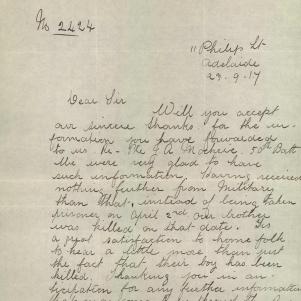 No 2424
11 Philip St
Adelaide
23.9.17
Dear Sir
Will you accept
our sincere thanks for the in-
formation you have forwarded
to us re- Pte J A 50th Batt
We were very glad to have
such information. Having received
nothing further from Military
than that, instead of being taken
prisoner on April 2nd our brother
was killed on that date. Its
a great satisfaction to home folk
to hear a little more than just
the fact that their boy has been
killed. Thanking you in an-
ticipation for any further information